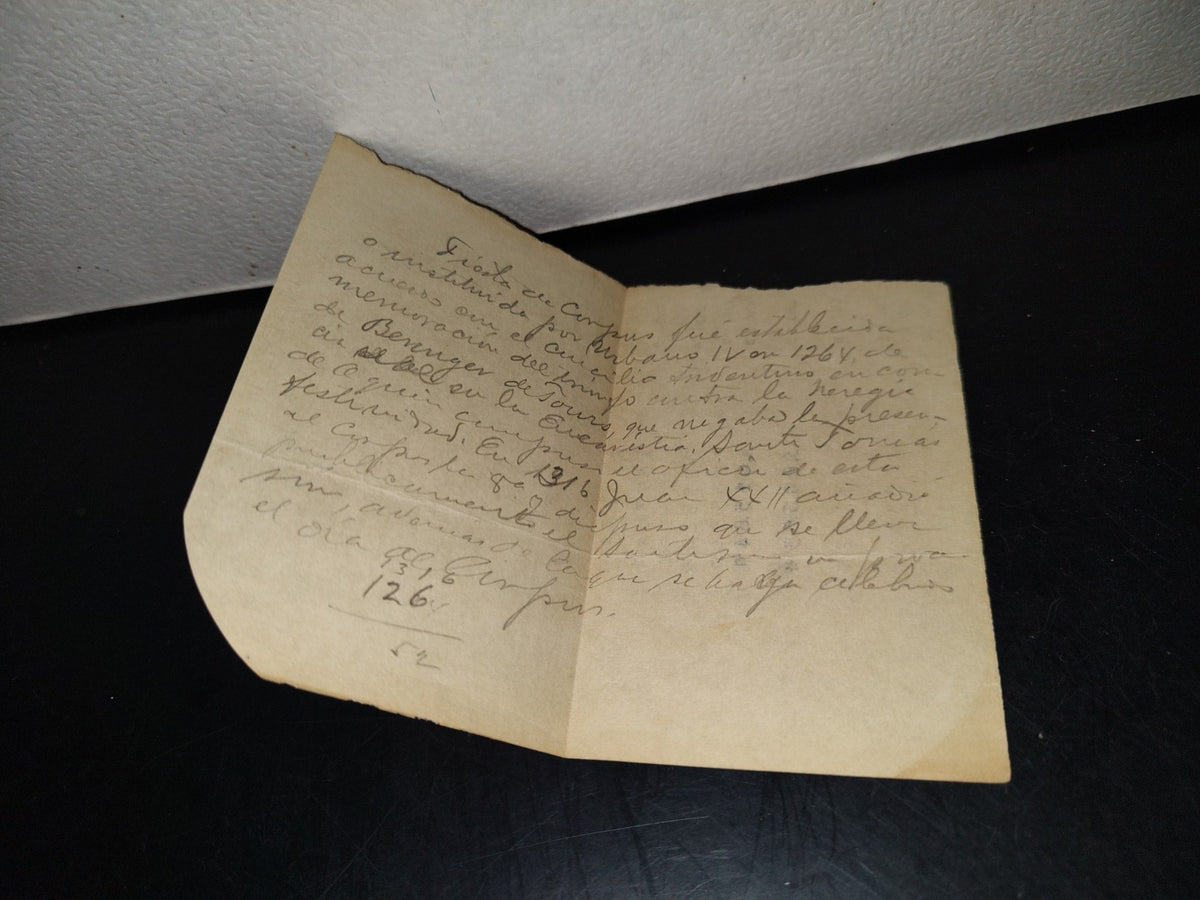 Fiesta de Corpus fué establecida
o instituida por Urbano IV en 1264, de
acuerdo con el concilio tridentino en con-
memoración del triunfo contra la heregia
de Berenger de Tours, que negaba la presen-
cia real en la Eucaristia. Santo Tomás
de Aquin compuso el oficio de esta
festividad. En 1316 Juan XXII añadió
al Corpus la 8a y dispuso que se lleve
publicamente el Santisimo en pro-
, ademas de la que se haga celebrios
el día del Corpus.
1316
1264
52